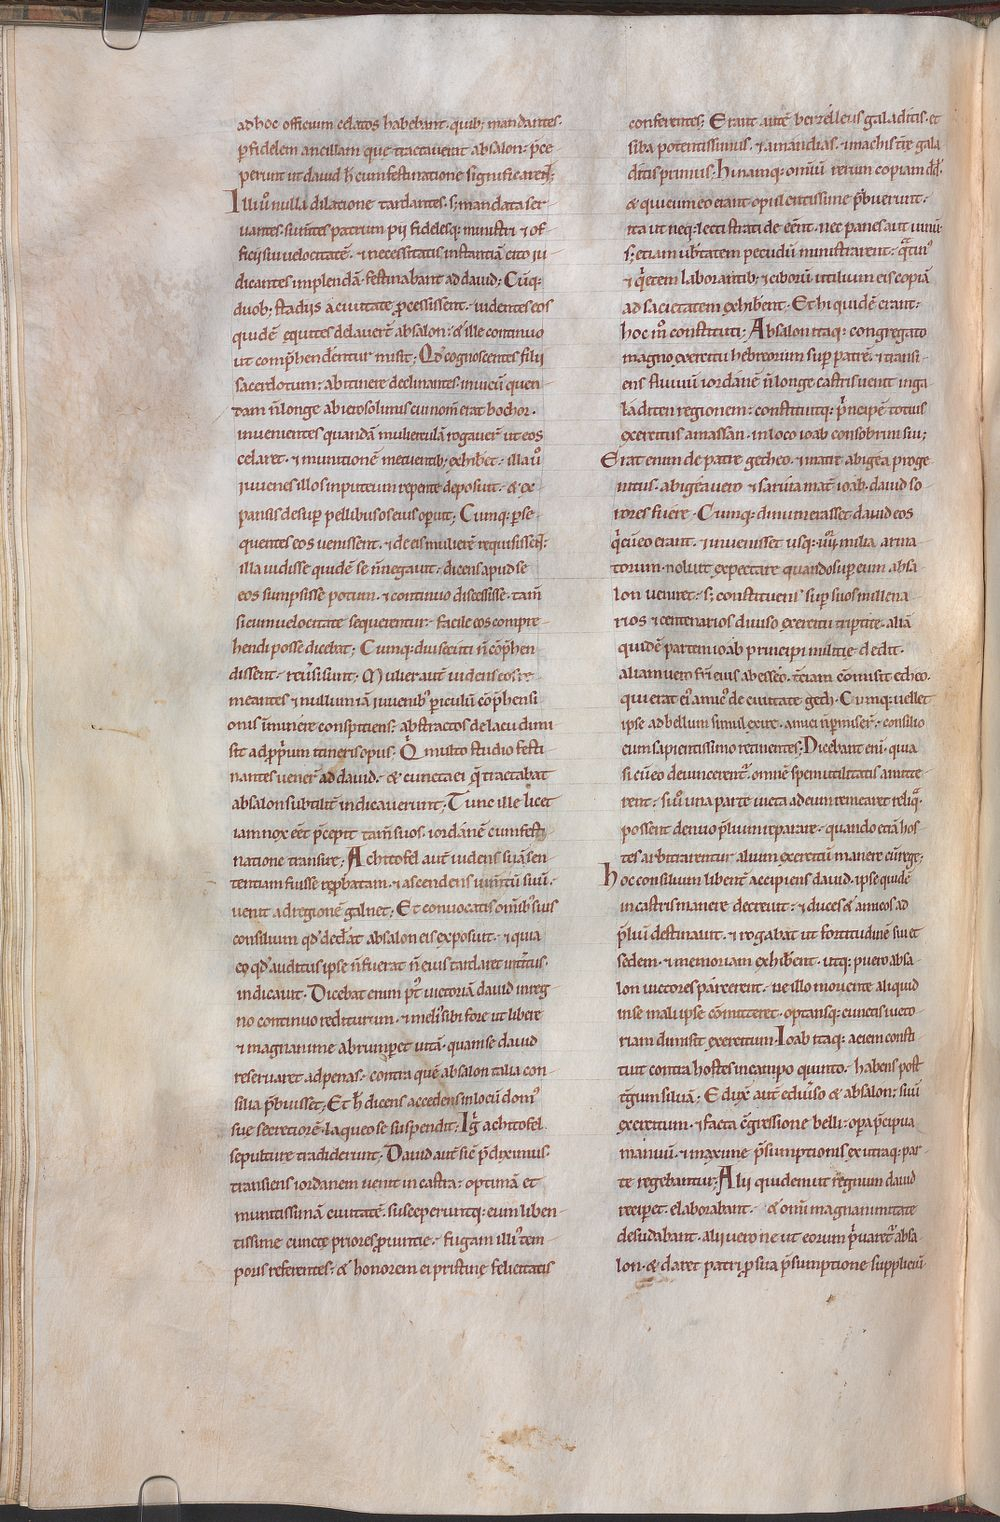 ad hoc officium celatos habebant. quib; mandantes.
p fidelem ancillam que tractauerat absalon: p̄ce
perunt ut dauid h̄ cum festinatione significaretq̄;
Illi ů nulla dilatione tardantes. s; mandata ser
uantes. suntes patrum pij fidelesq; ministri & of
ficij sui uelocitatē. & necessitatis instantiā cito iu
dicantes implendā. festinabant ad dauid; Cūq;
duob; stadijs a ciuitate p̄cessissent. uidentes eos
quidē equites delauerē absalon: & ille continuo
ut comp̄henderentur misit; Qd̓ cognoscentes filii
sacerdotum: ab itinere declinantes. inuicū quen
dam n̄ longe ab ierosolimis cui nom̄ erat bochor.
inuenientes quandā mulierculā rogauer̄ ut eos
celaret. & munitionē metuentib; exhib&. illa ů
iuuenes illos in puteum repente deposuit. & ex
pansis desup̄ pellibus os eius op̄uit; Cumq; p̄se
quentes eos uenissent. & de eis mulierē requisissēt;
illa uidisse quidē se n̄ negauit. dicens apud se
eos sumpsisse potum. & continuo discessisse. tam̄
si cum uelocitate sequerentur. facile eos compre
hendi posse dicebat; Cumq; diu secuti n̄ cōp̄hen
dissent. reuersi sunt; Mulier aut̄ uidens eos re
meantes & nullum iā iuuenib; piculū cōp̄hensi
onis iminere conspitiens; abstractos de lacu dimi
sit ad pp̄ium itineris opus; Q multo studio festi
nantes uener̄ ad dauid. & cuncta ei q̄ tractabat
absalon subtilit̄ indicauerunt; Tunc ille licet
iam nox eēt p̄cepit tam̄ suos. iordanē cum festi
natione transire; Achitofel aut̄ uidens suā sen
tentiam fuisse rep̄batam. & ascendens iumtū suū.
uenit ad regionē galnet; Et conuocatis om̄ib; suis
consilium qd̓ ded̄at absalon eis exposuit. & quia
eo qd̓ auditus ipse n̄ fuerat n̄ eius tardaret int̄itus.
indicauit. Dicebat enim p̄t uictoriā dauid in reg
no continuo rediturum. & meli; sibi fore ut libere
& magnanime abrumpet uitā. quam se dauid
reseruaret ad penas. contra quē absalon talia con
silia p̄buisset; Et h̄ dicens accedens in locū dom;
sue secretiorē. laqueo se suspendit; Iḡ achitofel
sepulture tradiderunt; Dauid aut̄ sic p̄diximus.
transiens iordanem uenit in castra: optimā et
munitissimā ciuitatē. susceperuntq; eum liben
tissime cuncte priores p̄uintie. fugam illi; tem
poris referentes. & honorem ei pristine felicitatis
conferentes; Erant autē berzelleus galaditis. et
siba potentissimus. & amandias. & machis t̄re gala
ditis primus; Hi namq; omīu rerum copiam dd̓.
& qui cum eo erant. opulentissime p̄buerunt.
ita ut neq; lecti strati deeēnt. nec panes aut uinū
s; etiam ub̄tatem pecudū ministrarent. q̄tin;
& q̄etem laborantib; & ciborū utilium eis copiā
ad sacietatem exhibent. Et hi quidē erant:
hoc m̊ constituti; Absalon itaq; congregato
magno exercitu hebreorum sup̄ patrē. & transi
ens fluuiū iordanē n̄ longe castris uenit in ga
laditen regionem: constituitq; p̄ncipē totius
exercitus amassan. in loco ioab consobrini sui;
Erat enim de patre getheo. & matre abigea proge
nitus. abigea uero & saruia mat̄ ioab. dauid so
rores fuere. Cumq; dinumerasset dauid eos
q̄ cū eo erant. & inuenisset usq; iiii milia arma
torum. noluit expectare quando sup̄ eum absa
lon ueniret. s; constituens sup̄ suos millena
rios & centenarios diuiso exercitu triptite. aliā
quidē partem ioab principi militie dedit.
aliam uero fr̄i eius abesseo. t̄ciam cōmisit etheo.
qui erat ei; amic; de ciuitate geth. Cumq; uellet
ipse ad bellum simul exire. amici n̄ pmiser̄. consilio
cum sapientissimo retinentes; Dicebant eni. quia
si cū eo deuincerent̄. omnē spem utilitatis amitte
rent. si ů una parte uicta ad eum remearet reliq̄.
possent denuo p̄lium reparare. quando etiā hos
tes arbitrarentur alium exercitū manere cū rege;
Hoc consilium libent̄ accipiens dauid. ipse quidē
in castris manere decreuit. & duces & amicos ad
p̄liū destinauit. & rogabat ut fortitudinē sui et
fidem. & memoriam exhiberent. utq; puero absa
lon uictores parcerent. ne illo moriente aliquid
in se mali ipse cōmitteret. optansq; cunctis uicto
riam dimisit exercitum. Ioab itaq; aciem consti
tuit contra hostes in campo quinto. habens post
t̄gum siluā; Eduxit aut̄ e diuiso & absalon: suū
exercitum. & facta cōgressione belli. opa p̄cipua
manuū. & maxime p̄sumptionis ex utraq; par
te regebantur; Alii quidem ut regnum dauid
recipet. elaborabant. & omī magnanimitate
desudabant. alii uero ne ut eorum p̄uaret̄ absa
lon. & daret patri p sua p̄sumptione suppliciū